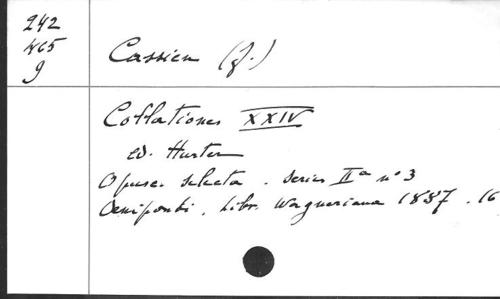 242
465
9
Cassien (J.)
Collationes XXIV
ed. Hurter
Opusc. selecta. series IIª nº 3
Oeniponti, Libr. Wagneriana 1887. 16